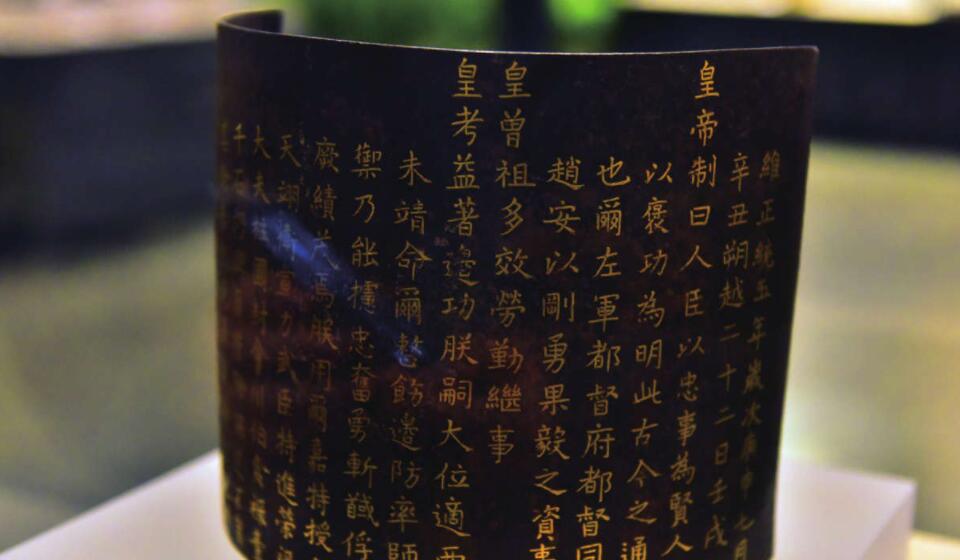 維正統五年歲次庚申七月
辛丑朔越二十二日壬戌
皇帝制曰人臣以忠事為賢人
以褒功為明此古今之通
也爾左軍都督府都督同
趙安以剛勇果毅之資事
皇曾祖多效勞勤繼事
皇考益著邊功朕嗣大位適西
未靖命爾整飭邊防率師
禦乃能攄忠奮勇斬馘俘
厥績茂焉朕用爾嘉特授
天翊衛宣力武臣特進榮
大夫柱國封會川伯食祿壹
千石